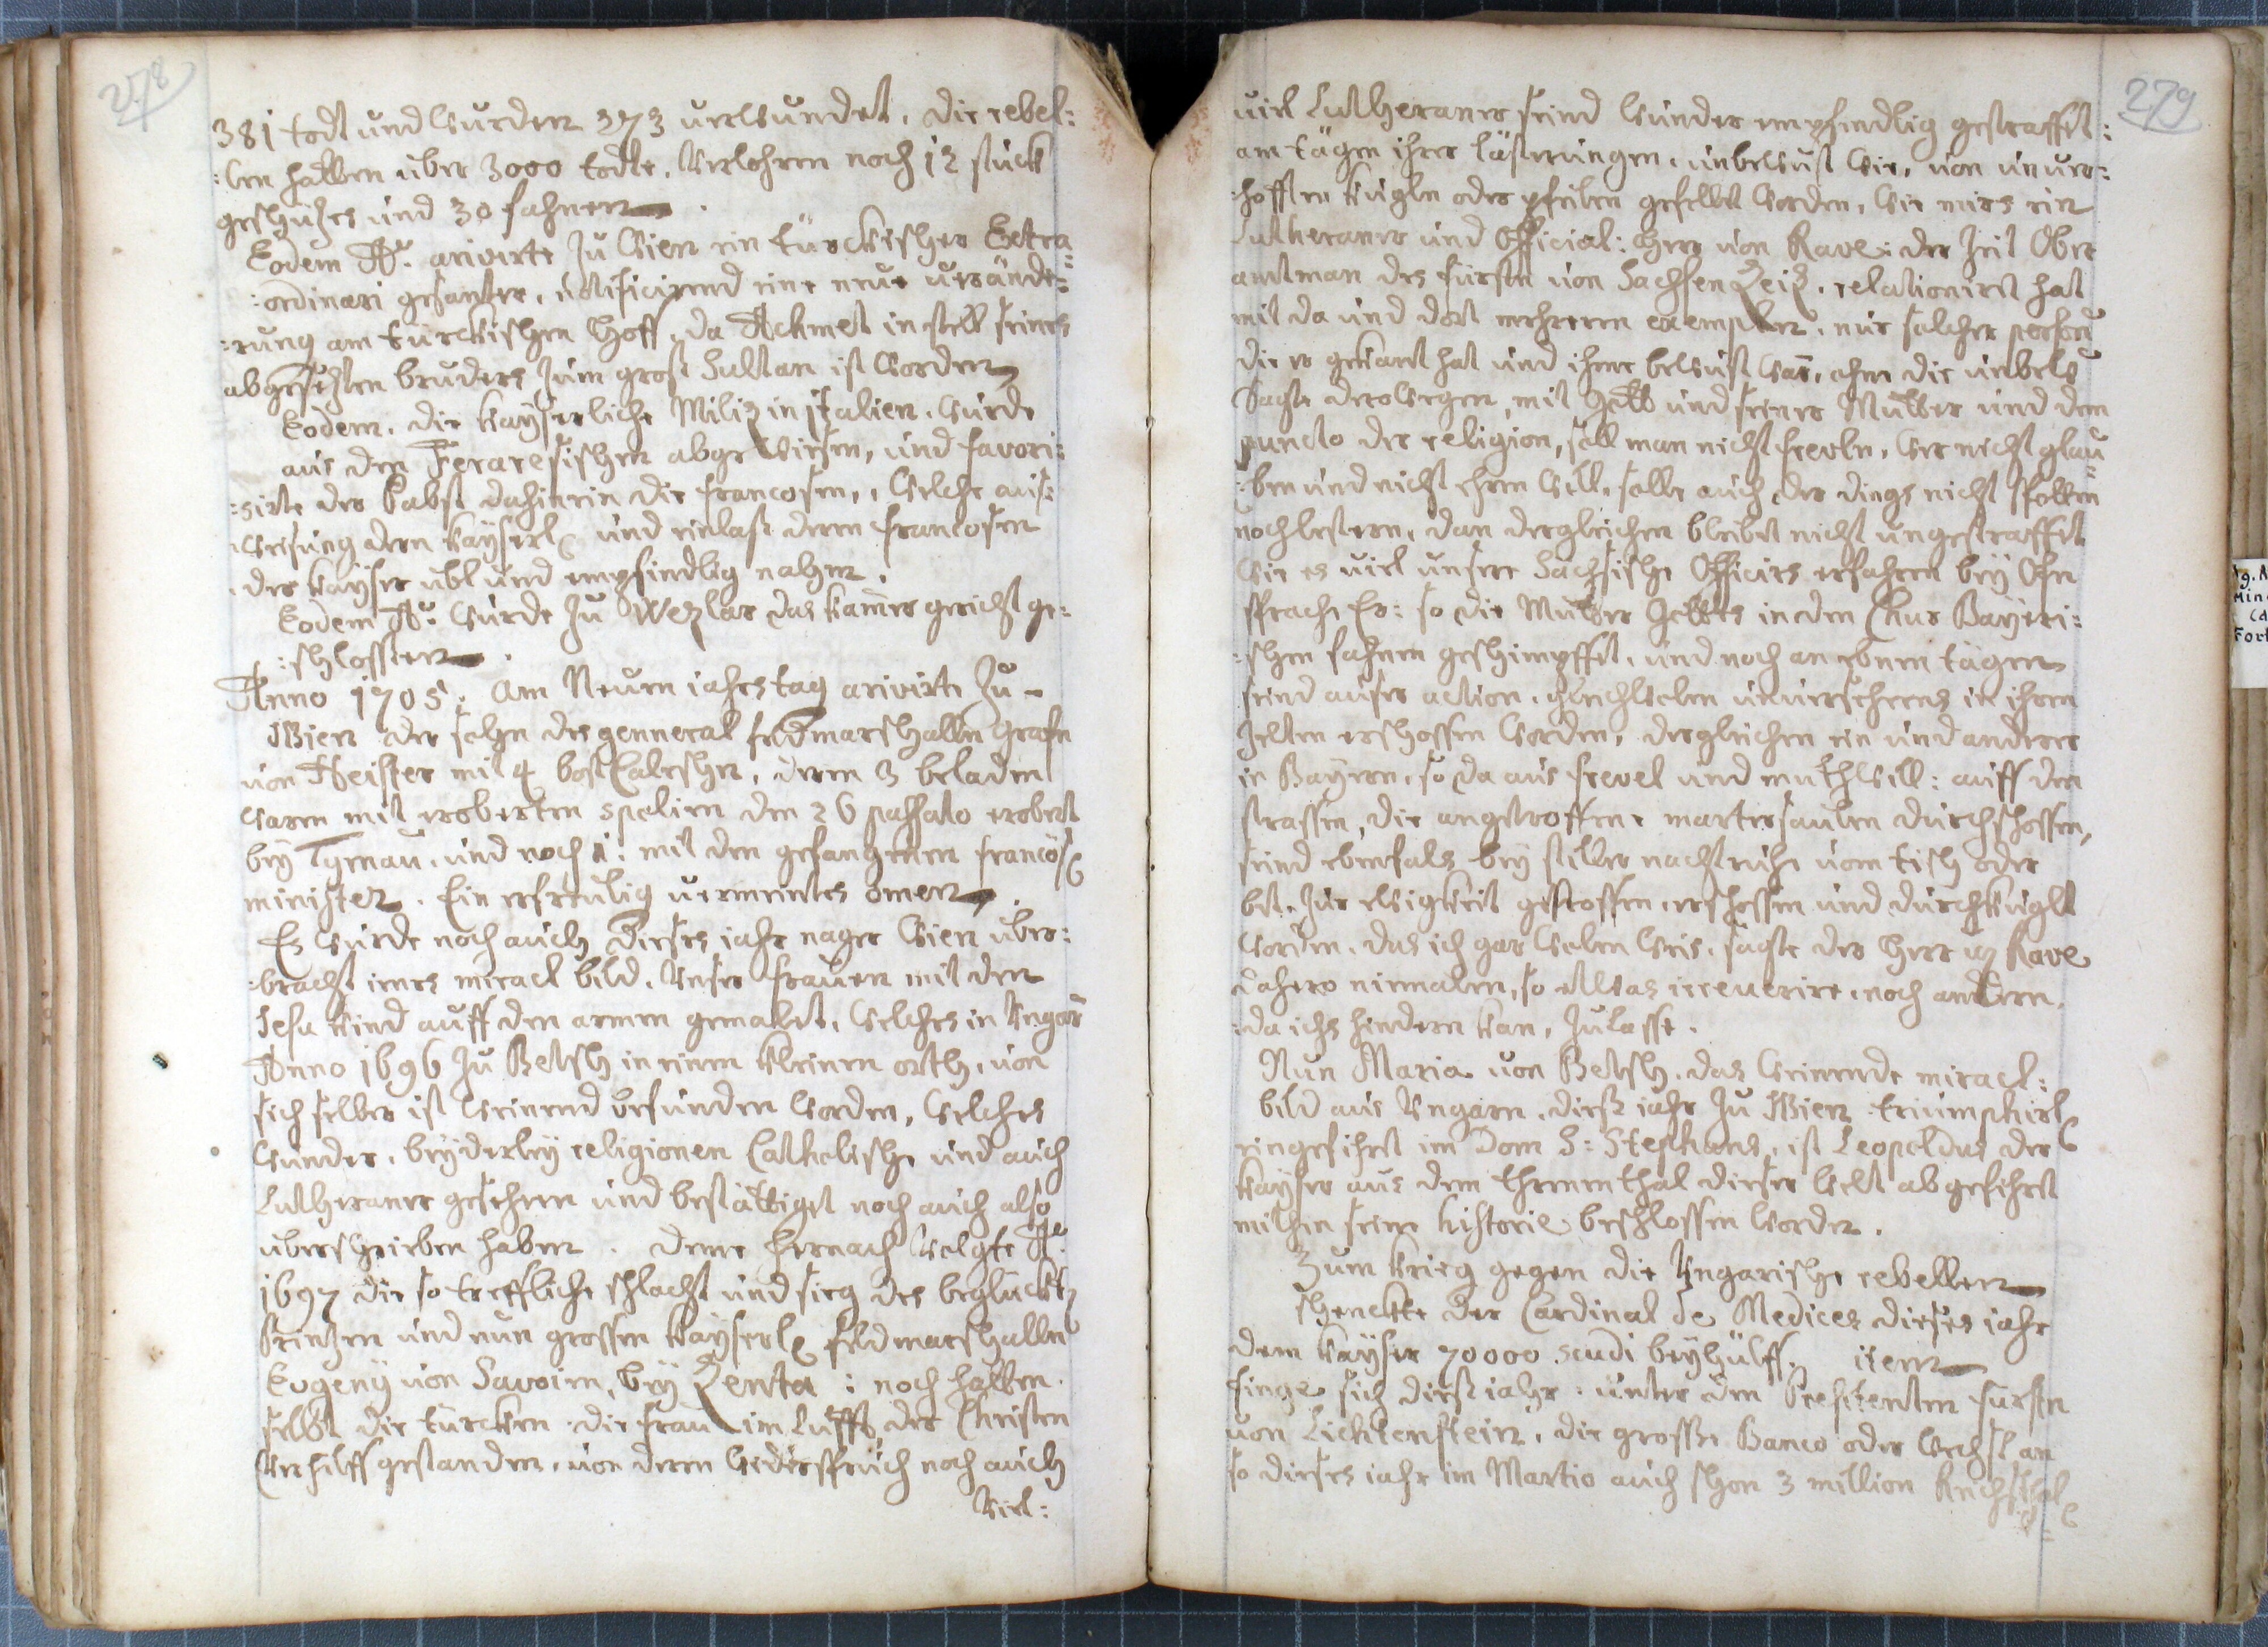 278
381 todt und wurden 373 verwundet. die rebel:
:len hatten uber 3000 todte, verlohren noch 12 stuck
geschüzes und 30 fahnen.
Eodem Aº. arivirte zu Wien ein türckischer Extra:
:ordinari gesanter, notificirend eine neue verände:
:rung am türckischen Hoff, da Achmet in stell seines
abgesezten bruders zum gross Sultan ist worden
Eodem. die kayserliche Miliz in jtalien. wurde
aus den Feraresischen abgewiesen, und favori:
:sirte der Pabst dahinein die francosen, welche aus:
:weisung deren kayserl und einlass deren francosen
der kayser ubl und empfindlig nahm.
Eodem Aº. wurde zu Wezlar das kamer gericht ge:
:schlossen.
Anno 1705. Am Neuen iahrs tag arivirte zu
Wien der sohn des genneral feldmarschallen Grafn
von Heister mit 4 post Caleshen, deren 3 beladen
waren mit eroberten spolien den 26 passato erobert
bey Tyrnau. und noch 1. mit den gefangenen francös
minister. Ein erfreulig vermeintes omen.
Es wurde noch auch dieses iahr nager Wien uber:
:bracht ienes miracl bild. Unser frauen mit den
Jesu kind auff den armen gemahlt, welches in Ungarn
Anno 1696 zu Betsch in einem kleinen orth, von
sich selber ist weinend befunden worden, welches
wunder. beyderley religionen Catholische und auch
Lutheraner gesehen und bestättiget noch auch also
uberschrieben haben. deme hernach volgte Aº
1697 die so treffliche schlacht und sieg des beglückten
Prinzen und nun grossen kayserl feldmarschallen
Eugeny von Savoien, bey Zenta: noch hatten
selbst die türcken die frau im Lufft, der Christen
verhilff gestanden, von deren wiederspruch noch auch
viel:
279
viel Lutheraner seind wunder empfindlig gestrafft:
am tägen ihrer lästerungen, unbewust wie, von unver:
:hofften kuglen oder pfeilen gefellet worden, wie mirs ein
Lutheraner und Official: Herr von Rave: der zeit Ober
amtman des fürsten von Sachsen Zeiz. relationiret hat
mit da und dort mehreren exemplen, nur solcher personen
die er gekant hat und ihme bewust war, ohne die unbewu
Sagte derowegen, mit Gott und seiner Mutter und dem
puncto der religion, soll man nicht frevlen, wer nicht glau
:ben und nicht ehren will, solle auch der dings nicht spotten
noch lestern, dan dergleichen bleibet nicht ungestraffet
wie es viel unsere Sachsische Officirs erfahren bey Ofn
sprach Er: so die Mutter Gottes in den Chur Bayeri:
:schen fahnen geschimpffet, und noch an ebnem tägen
seind auser action, gleichwolen unversehens in ihren
Zelten erschossen worden, dergleichen ein und anderer
in Bayern, so da aus frevel und muthwill: auff den
strassen, die angetroffene martersaulen durchschossen,
seind ebenfals bey stiller nachtruhe vom tisch oder
bet, zur ewigkeit gestossen, erschossen und durchkuglt
worden. das ich gar wolen weis, sagte der Herr v Rave
dahero niemalen, so etwas irreverire, noch anderen,
da ichs hindern kan, zulasse.
Nun Maria von Betsch, das weinende miracl:
bild aus Ungarn, diess iahr zu Wien triumphirl
eingefihret im Dom S: Stephans, ist Leopoldus der
kayser aus dem threnenthal dieser welt abgefihret
mithin seine historie beschlossen worden.
Zum krieg gegen die Ungarische rebellen
schenckte der Cardinal de Medices dieses iahr
dem kayser 70000 scudi beyhülff. item
finge sich diess iahr. unter den Presitenten fursten
von Lichtenstein, die grosse Banco oder wechsl an
so dieses iahr im Martio auch schon 3 million Reichsthal